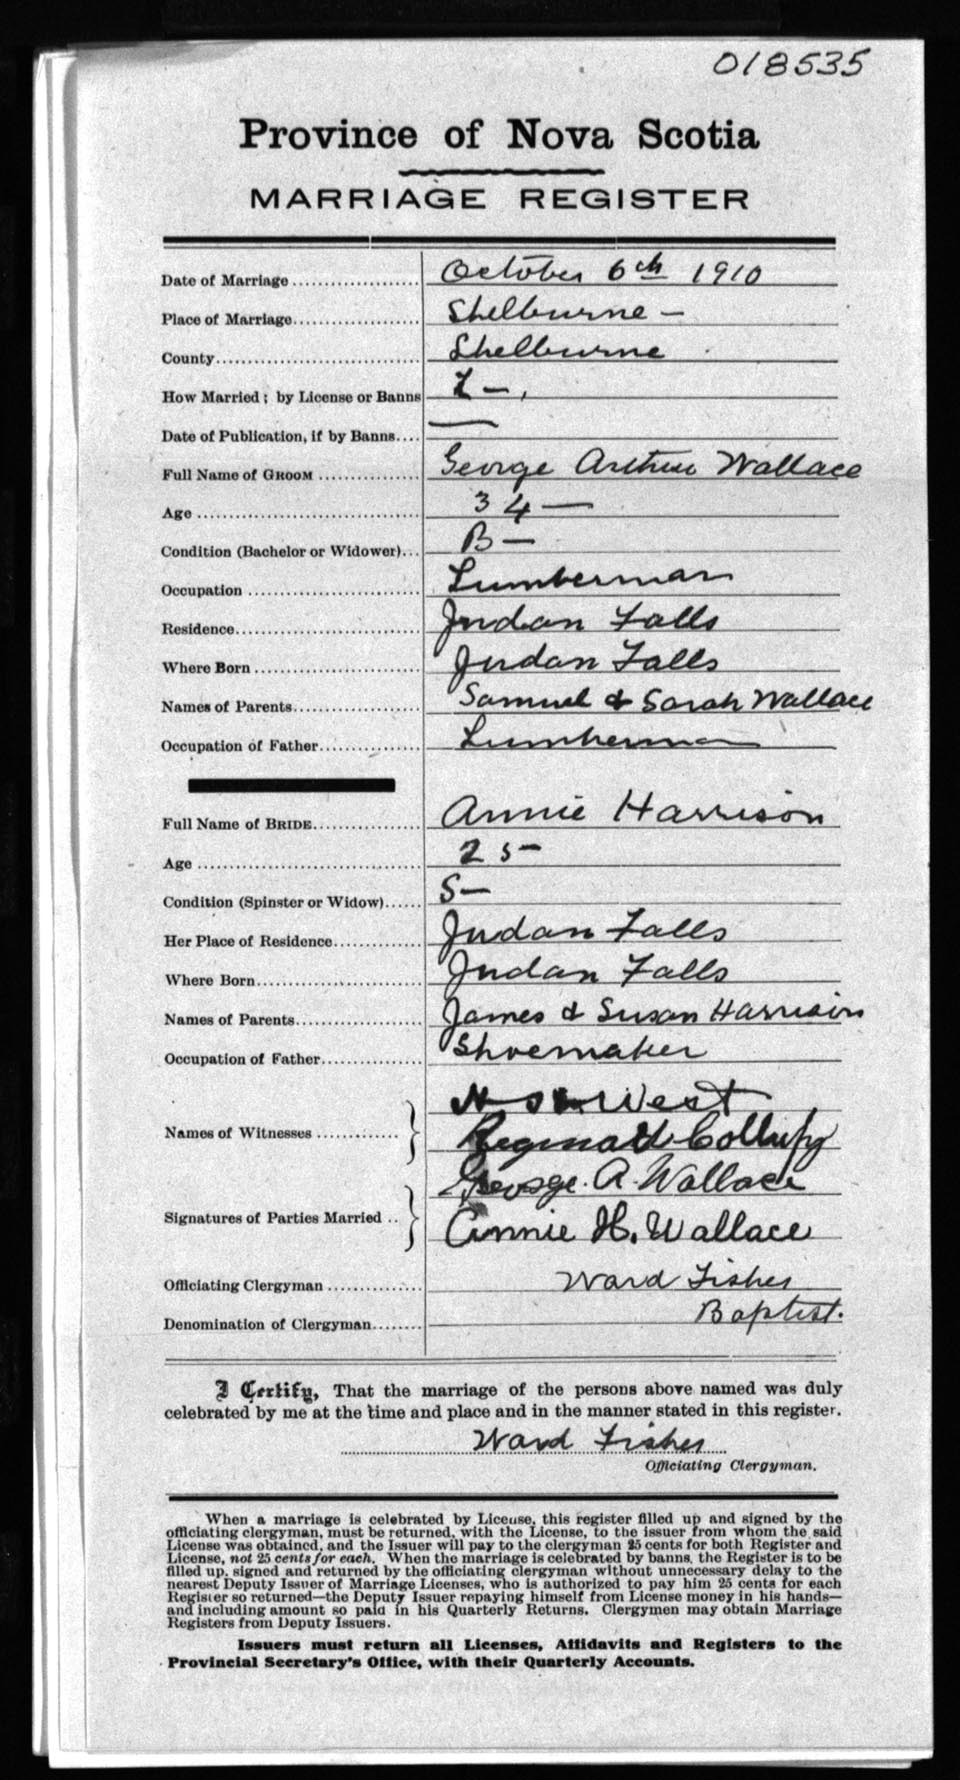 018535
Province of Nova Scotia
MARRIAGE REGISTER
Date of Marriage October 6th 1910
Place of Marriage Shelburne -
County Shelburne
How Married; by License or Banns L -
Date of Publication, if by Banns —
Full Name of GROOM George Arthur Wallace
Age 34 —
Condition (Bachelor or Widower) B —
Occupation Lumberman
Residence Jordan Falls
Where Born Jordan Falls
Names of Parents Samuel & Sarah Wallace
Occupation of Father Lumberman
Full Name of BRIDE Annie Harrison
Age 25 -
Condition (Spinster or Widow) S —
Her Place of Residence Jordan Falls
Where Born Jordan Falls
Names of Parents James & Susan Harrison
Occupation of Father Shoemaker
West
Names of Witnesses Reginald
George. A. Wallace
Signatures of Parties Married Annie H. Wallace
Officiating Clergyman Ward Fisher
Denomination of Clergyman Baptist.
I Certify, That the marriage of the persons above named was duly
celebrated by me at the time and place and in the manner stated in this register.
Ward Fisher
Officiating Clergyman.
When a marriage is celebrated by License, this register filled up and signed by the
officiating clergyman, must be returned, with the License, to the issuer from whom the said
License was obtained, and the Issuer will pay to the clergyman 25 cents for both Register and
License, not 25 cents for each. When the marriage is celebrated by banns, the Register is to be
filled up, signed and returned by the officiating clergyman without unnecessary delay to the
nearest Deputy Issuer of Marriage Licenses, who is authorized to pay him 25 cents for each
Register so returned—the Deputy Issuer repaying himself from License money in his hands—
and including amount so paid in his Quarterly Returns. Clergymen may obtain Marriage
Registers from Deputy Issuers.
Issuers must return all Licenses, Affidavits and Registers to the
Provincial Secretary's Office, with their Quarterly Accounts.